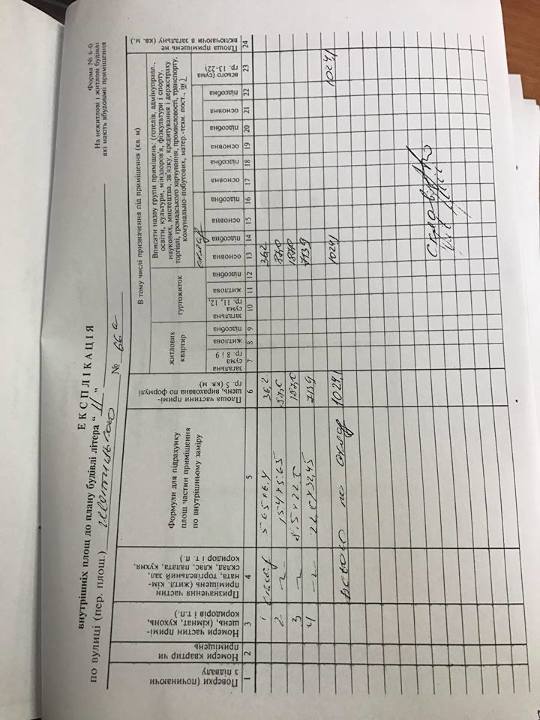 Форма № 6-0
На нежитлові і житлові будівлі
які мають вбудовані приміщення
ЕКСПЛІКАЦІЯ
внутрішніх площ до плану будівлі літера "
по вулиці (пер. площ.)
№ 66а
Поверхи (починаючи з підвалу
Номери квартир чи приміщень
Номери частин примі-
щень, (кімнат, кухонь,
коридорів і т.п.)
Призначення частин
приміщень (житл. кім-
ната, торгівельний зал,
склад, клас, палата, кухня,
коридор і т. п.)
Формули для підрахунку
площ частин приміщення
по внутрішньому заміру
Площа частини примі-
щень, вирахована по формулі
гр. 5 (кв. м)
В тому числі призначення під приміщення (кв. м)
житлових
квартир
гуртожиток
Вписати назву групи приміщень: (готелів, адмінуправл.,
освіти, культури, міндоров'я, фізкультури і спорту,
наукових, мистецтва, зв'язку, кредитування і держстраху
торгівлі, громадського харчування, промисловості, транспорту,
комунально-побутових, матер.-техн. пост.,
склад
загальна
сума
гр. 8 і 9
житлова
підсобна
загальна
сума
гр. 11, 12,
житлова
підсобна
основна
підсобна
основна
підсобна
основна
підсобна
основна
підсобна
основна
підсобна
всього (сума
гр. 13-22)
Площа приміщень не
включаючи в загальну (кв. м.)
1 2 3 4 5 6 7 8 9 10 11 12 13 14 15 16 17 18 19 20 21 22 23 24
1 склад 5.65x6.4 36,2 36,2
2 15.4x5.65 87,0 87,0
3 8.5x22.5
4 22.0x32,45 713,9 713,9
Всього по складу 1029,1 1029,1 1029,1